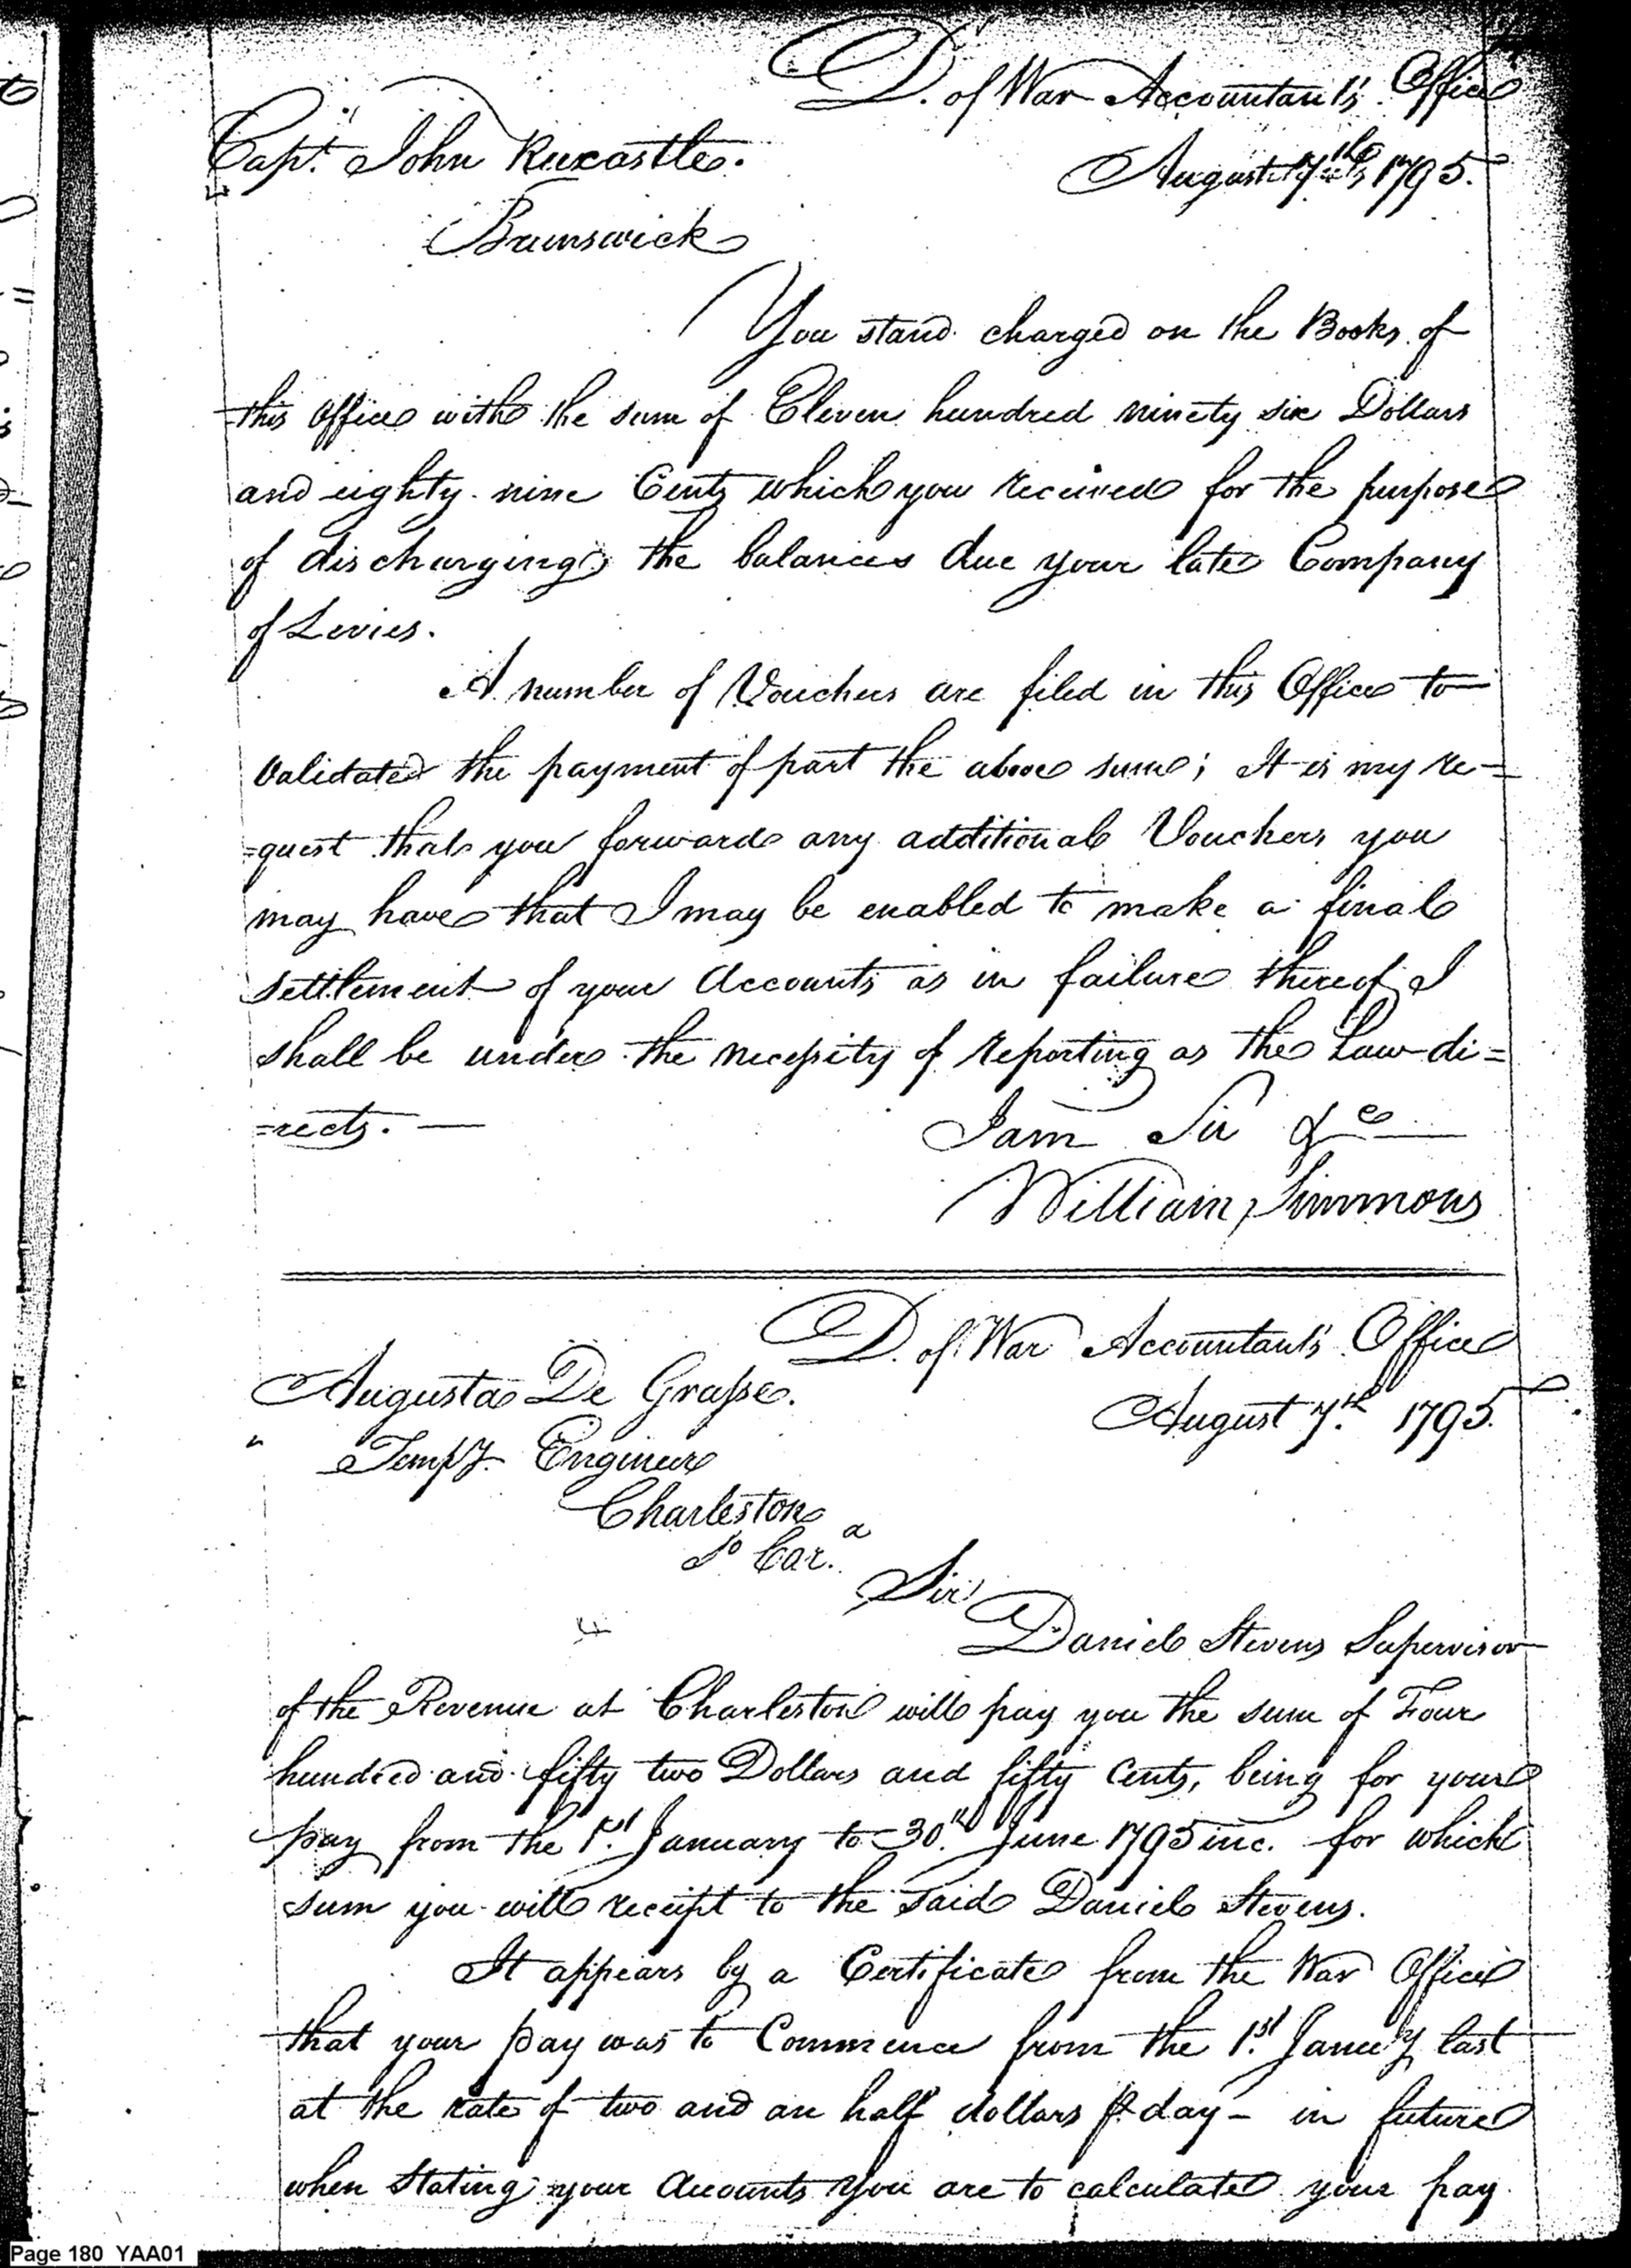 D. of War Accountant's Office
Capt. John Ruecastle.
August 7th 1795.
Brunswick
You stand charged on the Books of
this Office with the sum of Eleven hundred ninety six Dollars
and eighty nine Cents which you received for the purpose
of discharging the balances due your late Company
of Levies.
A number of Vouchers are filed in this Office to
validate the payment of part the above sum; It is my re=
=quest that you forward any additional Vouchers you
may have that I may be enabled to make a final
settlement of your Accounts as in failure thereof I
shall be under the necessity of reporting as the Law di=
=rects. —
I am Sir &c
William Simmons
D. of War Accountant's Office
Augusta De Grasse.
August 7th 1795.
Tempy. Engineer
Charleston
So Cara.
Sir
Daniel Stevens Supervisor
of the Revenue at Charleston will pay you the sum of Four
hundred and fifty two Dollars and fifty Cents, being for your
pay from the 1st January to 30th June 1795 inc. for which
sum you will receipt to the said Daniel Stevens.
It appears by a Certificate from the War Office
that your pay was to Commence from the 1st Januy last
at the rate of two and an half dollars P day — in future
when Stating your Accounts you are to calculate your pay
Page 180 YAA01